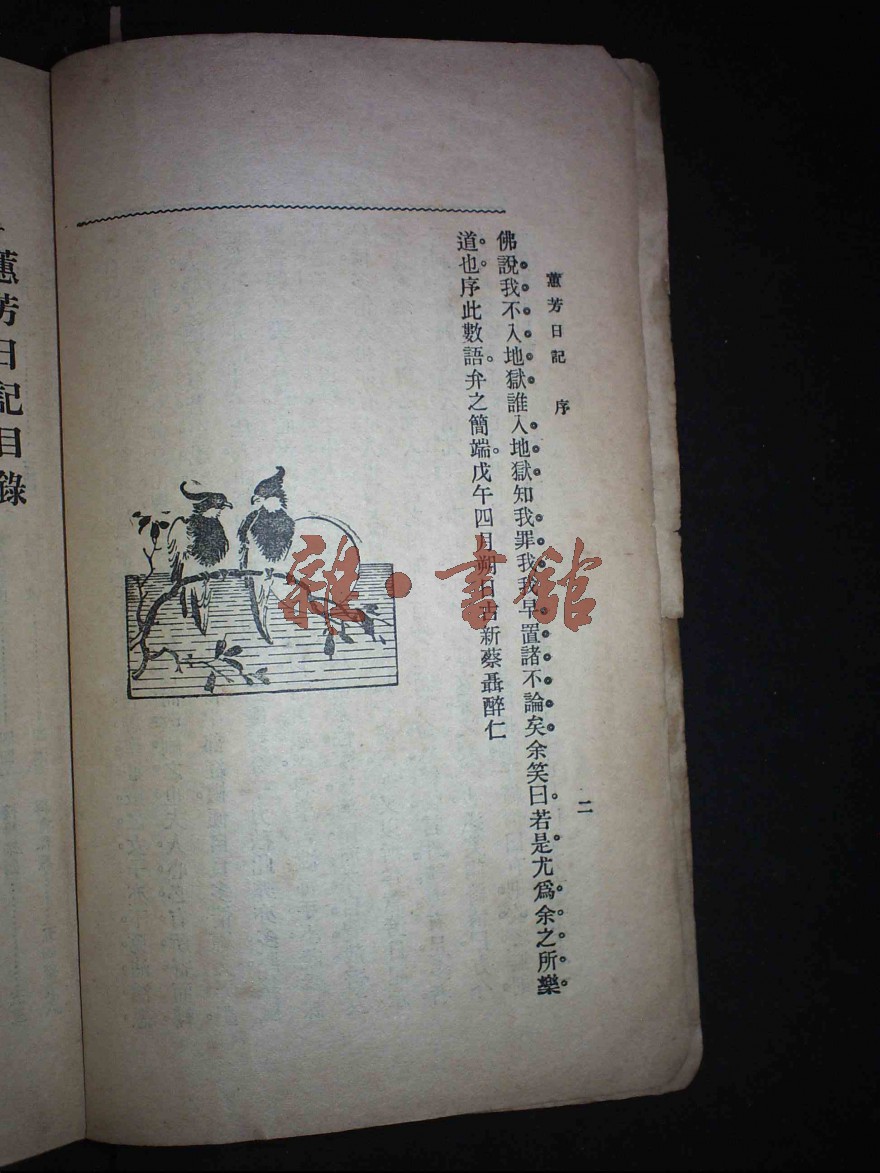 蕙芳日記 序
二
佛說我不入地獄誰入地獄知我罪我我早置諸不論矣余笑曰若是尤爲余之所樂
道也序此數語弁之簡端戊午四月朔日古新蔡聶醉仁
蕙芳日記目錄
雜·書館